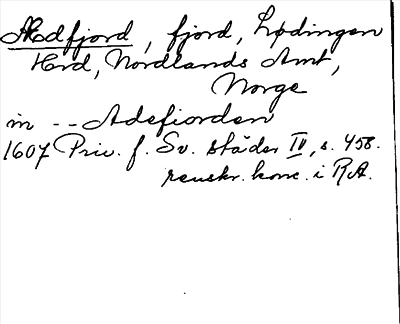 Ædfjord, fjord, Lødingen
Hrd, Nordlands Amt,
Norge
in -- Adefiorden
1607 Priv. f. Sv. städer IV, s. 458.
renskr. konc. i R.A.